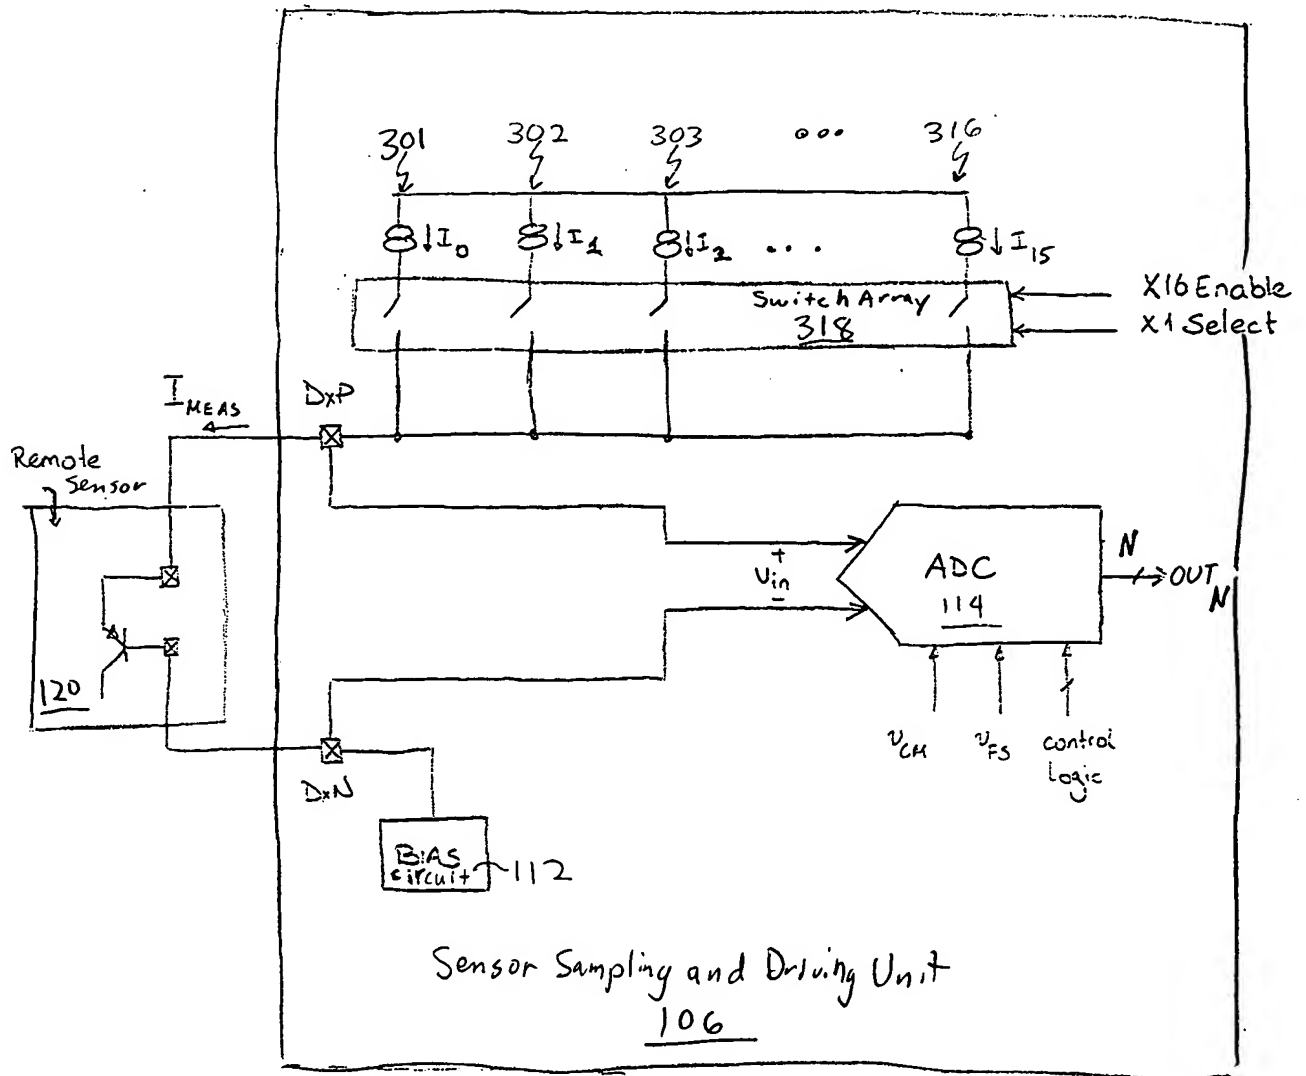 301 302 303 ... 316
I0 I1 I2 ... I15
Switch Array
318
X16 Enable
X1 Select
IMEAS
DxP
Remote
Sensor
120
+
Vin
-
ADC
114
N
OUTN
VCM VFS control
logic
DxN
BIAS
circuit
112
Sensor Sampling and Driving Unit
106